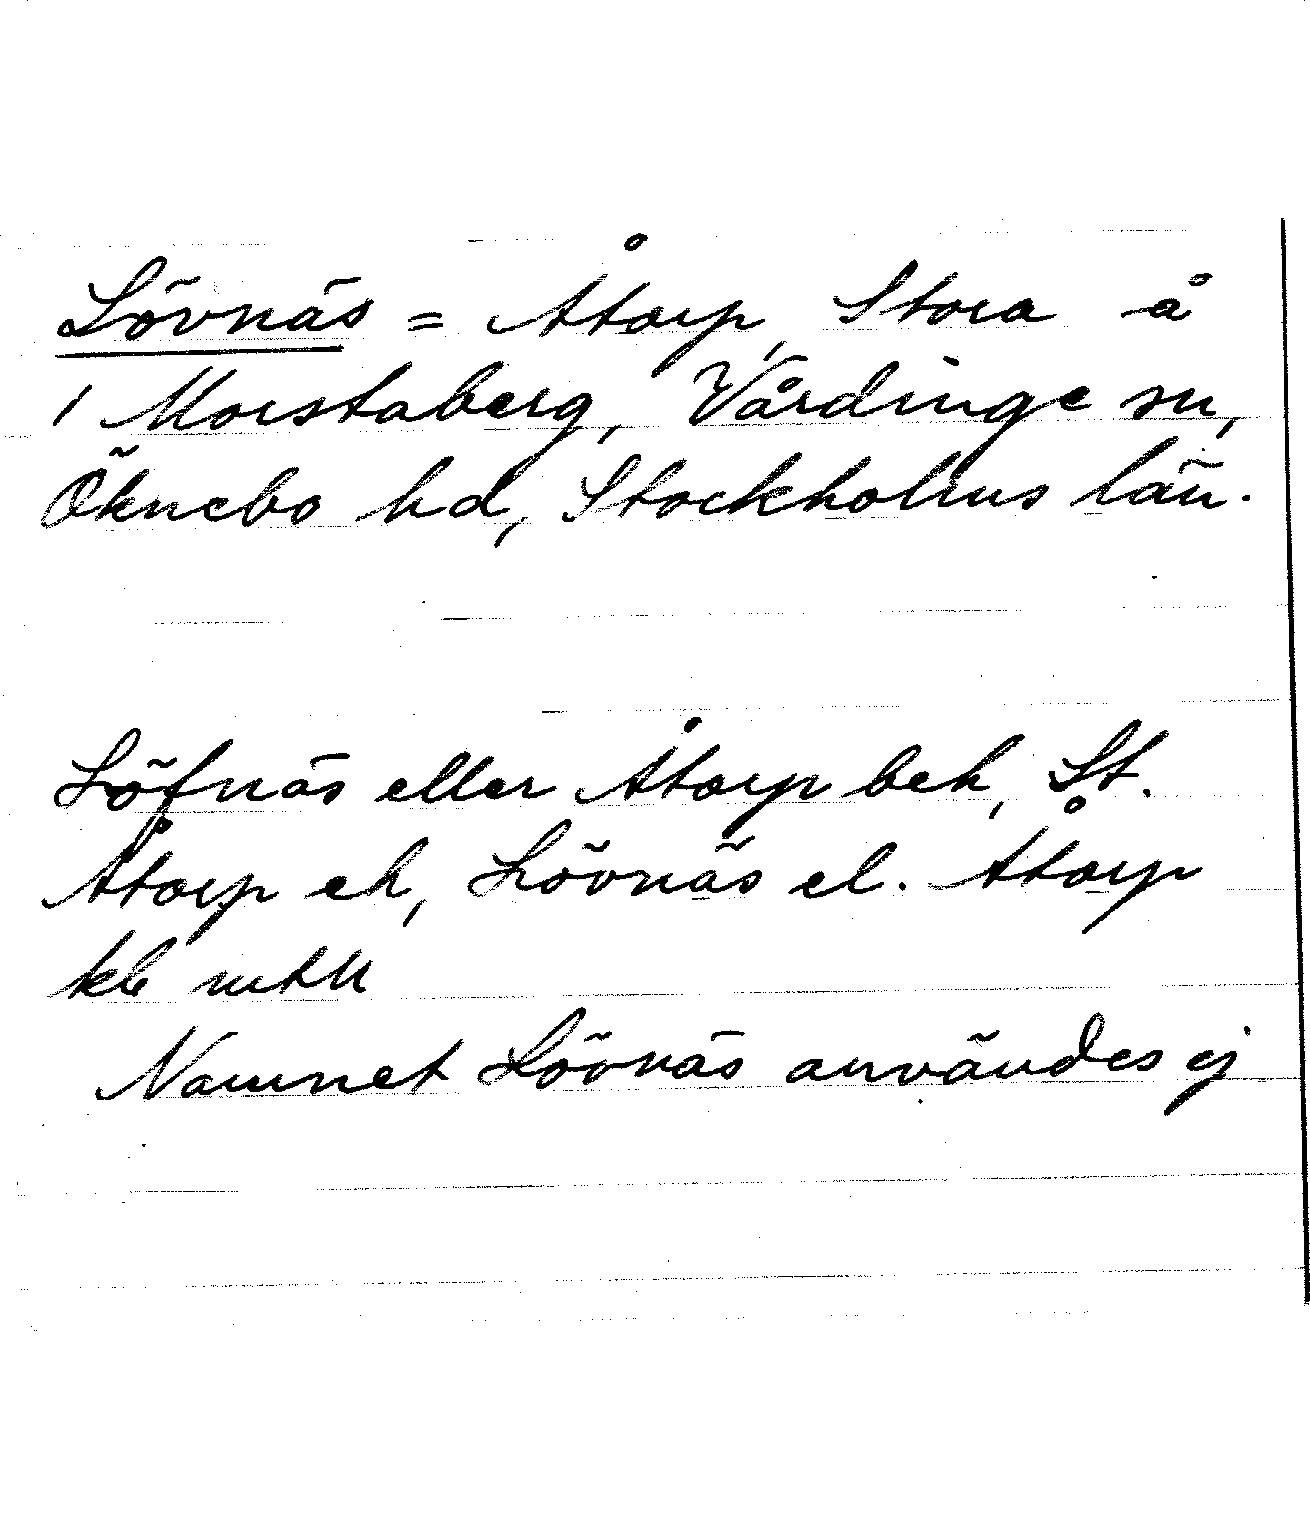 Lövnäs = Åtorp, Stora å
1 Morstaberg, Vårdinge sn,
Öknebo hd, Stockholms län.
Löfnäs eller Åtorp bek, St.
Åtorp ek, Lövnäs el. Åtorp
kb mtll
Namnet Lövnäs användes ej